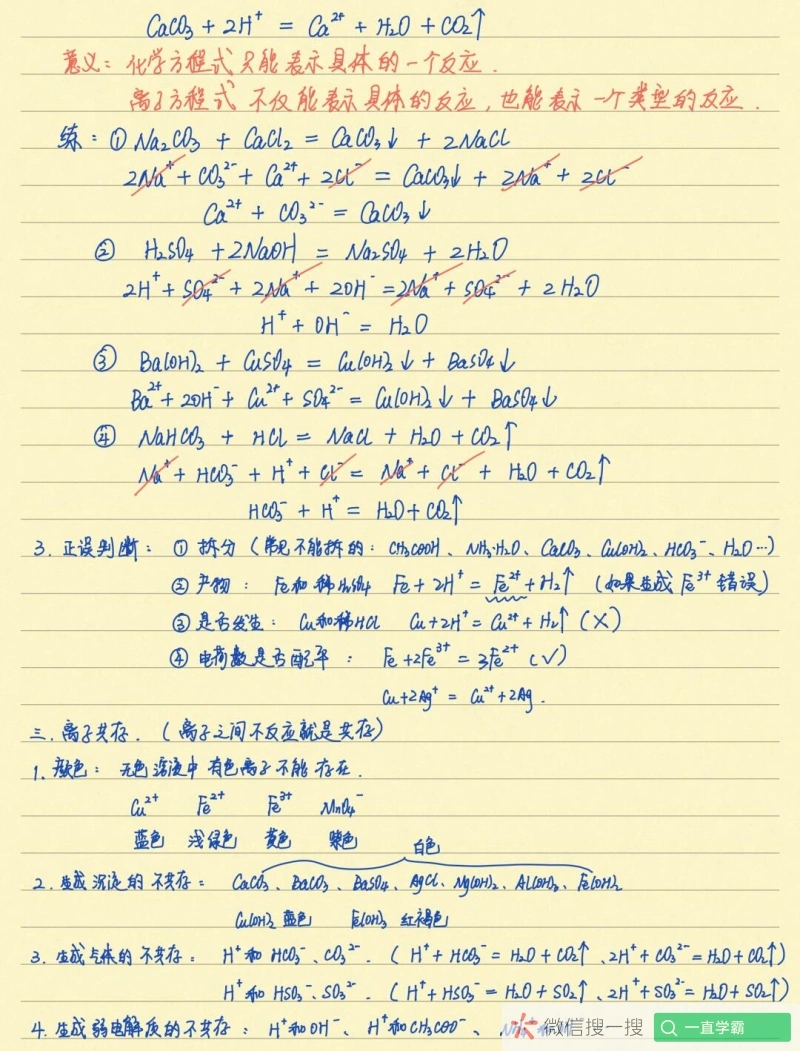 CaCO₃ + 2H⁺ = Ca²⁺ + H₂O + CO₂↑
意义：化学方程式只能表示具体的一个反应．
离子方程式 不仅能表示具体的反应，也能表示一个类型的反应．
练：① Na₂CO₃ + CaCl₂ = CaCO₃↓ + 2NaCl
2Na⁺ + CO₃²⁻ + Ca²⁺ + 2Cl⁻ = CaCO₃↓ + 2Na⁺ + 2Cl⁻
Ca²⁺ + CO₃²⁻ = CaCO₃↓
② H₂SO₄ + 2NaOH = Na₂SO₄ + 2H₂O
2H⁺ + SO₄²⁻ + 2Na⁺ + 2OH⁻ = 2Na⁺ + SO₄²⁻ + 2H₂O
H⁺ + OH⁻ = H₂O
③ Ba(OH)₂ + CuSO₄ = Cu(OH)₂↓ + BaSO₄↓
Ba²⁺ + 2OH⁻ + Cu²⁺ + SO₄²⁻ = Cu(OH)₂↓ + BaSO₄↓
④ NaHCO₃ + HCl = NaCl + H₂O + CO₂↑
Na⁺ + HCO₃⁻ + H⁺ + Cl⁻ = Na⁺ + Cl⁻ + H₂O + CO₂↑
HCO₃⁻ + H⁺ = H₂O + CO₂↑
3. 正误判断：① 拆分（常见不能拆的：CH₃COOH、NH₃·H₂O、CaCO₃、Cu(OH)₂、HCO₃⁻、H₂O…）
② 产物：Fe和稀H₂SO₄ Fe + 2H⁺ = Fe²⁺ + H₂↑（如果生成Fe³⁺错误）
③ 是否发生：Cu和稀HCl Cu + 2H⁺ = Cu²⁺ + H₂↑（×）
④ 电荷数是否配平：Fe + 2Fe³⁺ = 3Fe²⁺（√）
Cu + 2Ag⁺ = Cu²⁺ + 2Ag．
三．离子共存．（离子之间不反应就是共存）
1. 颜色：无色溶液中有色离子不能存在．
Cu²⁺ Fe²⁺ Fe³⁺ MnO₄⁻
蓝色 浅绿色 黄色 紫色
白色
2. 生成沉淀的不共存：CaCO₃、BaCO₃、BaSO₄、AgCl、Mg(OH)₂、Al(OH)₃、Fe(OH)₂
Cu(OH)₂ 蓝色 Fe(OH)₃ 红褐色
3. 生成气体的不共存：H⁺和HCO₃⁻、CO₃²⁻．（H⁺ + HCO₃⁻ = H₂O + CO₂↑、2H⁺ + CO₃²⁻ = H₂O + CO₂↑）
H⁺和HSO₃⁻、SO₃²⁻．（H⁺ + HSO₃⁻ = H₂O + SO₂↑、2H⁺ + SO₃²⁻ = H₂O + SO₂↑）
4. 生成弱电解质的不共存：H⁺和OH⁻、H⁺和CH₃COO⁻、
微信搜一搜 一直学霸